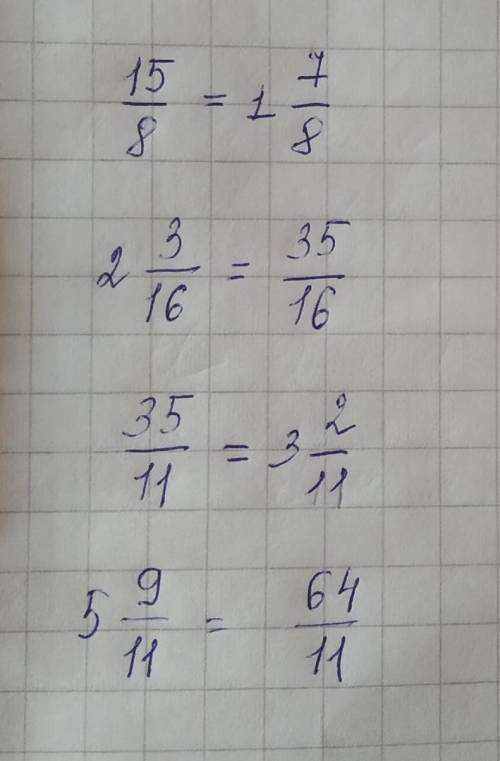 15/8 = 1 7/8
2 3/16 = 35/16
35/11 = 3 2/11
5 9/11 = 64/11